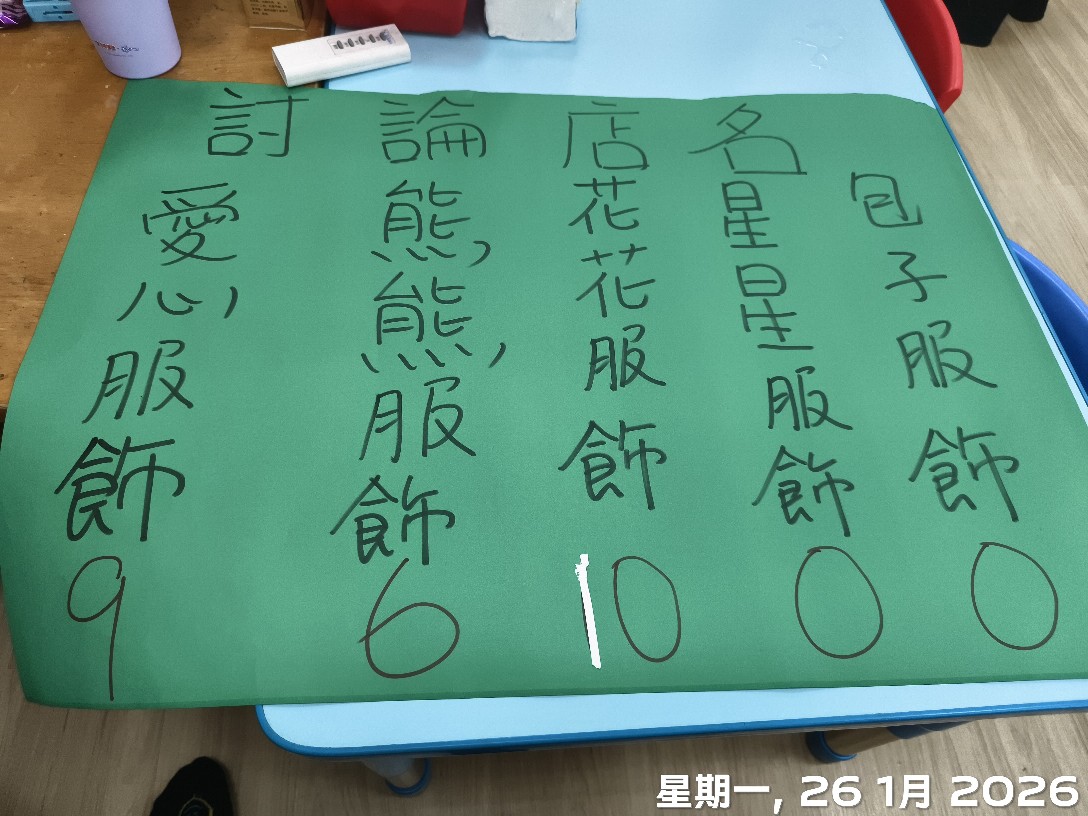 討論店名
愛心服飾
9
熊熊服飾
6
花花服飾
10
星星服飾
0
包子服飾
0
星期一, 26 1月 2026